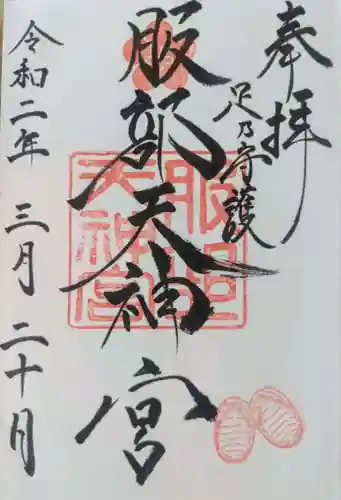 奉拝
足乃守護
服部天神宮
令和二年三月二十月
服部天神宮